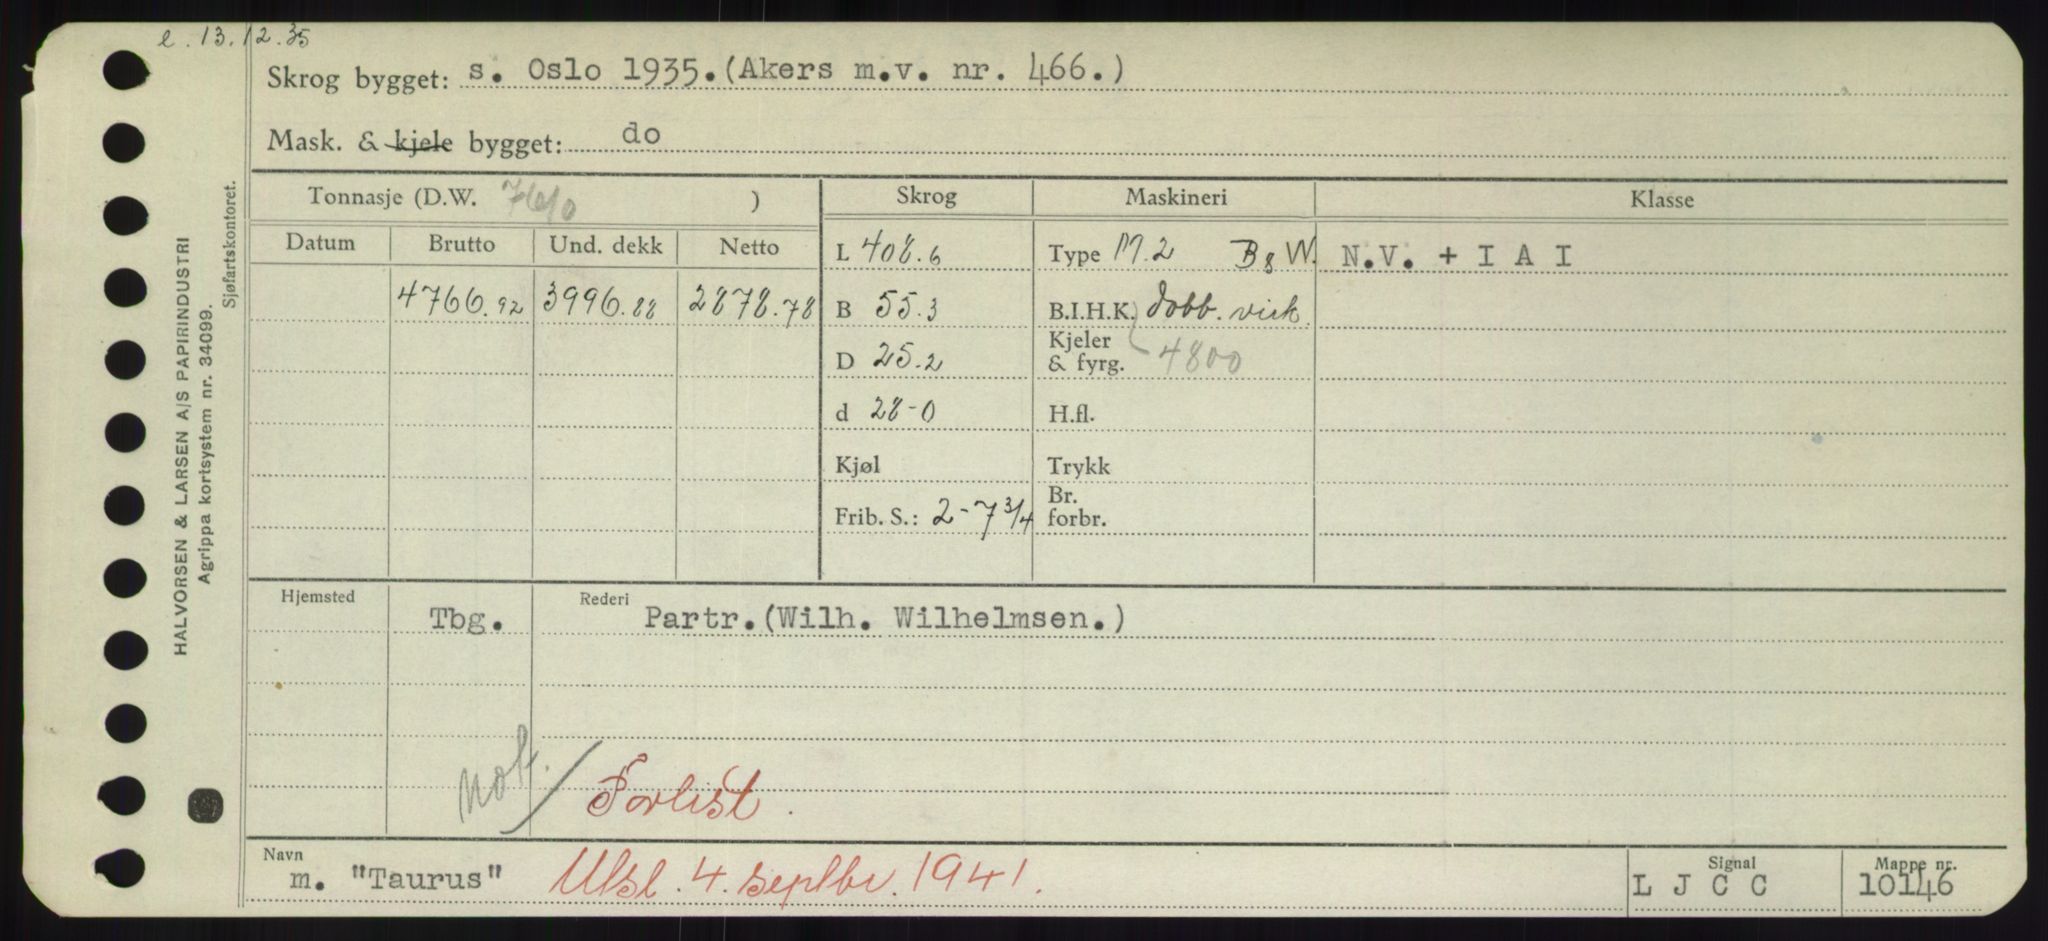 e. 13.12.35
Skrog bygget: s. Oslo 1935.(Akers m.v. nr. 466.)
Mask. & kjele bygget: do
Tonnasje (D.W. 7610 )
Skrog
Maskineri
Klasse
Datum
Brutto
Und. dekk
Netto
L 408.6
Type M.2 B&W.
N.V. + I A I
4766.92
3996.88
2878.78
B 55.3
B.I.H.K. dobb. virk.
Kjeler
D 25.2
& fyrg. 4800
d 28-0
H.fl.
Kjøl
Trykk
Br.
Frib. S.: 2-7 3/4
forbr.
Hjemsted
Tbg.
Rederi
Partr.(Wilh. Wilhelmsen.)
not.
Forlist.
Navn
m. "Taurus"
Utsl. 4. septbr. 1941.
Signal
L J C C
Mappe nr.
10146
HALVORSEN & LARSEN A/S PAPIRINDUSTRI
Agrippa kortsystem nr. 34099.
Sjøfartskontoret.